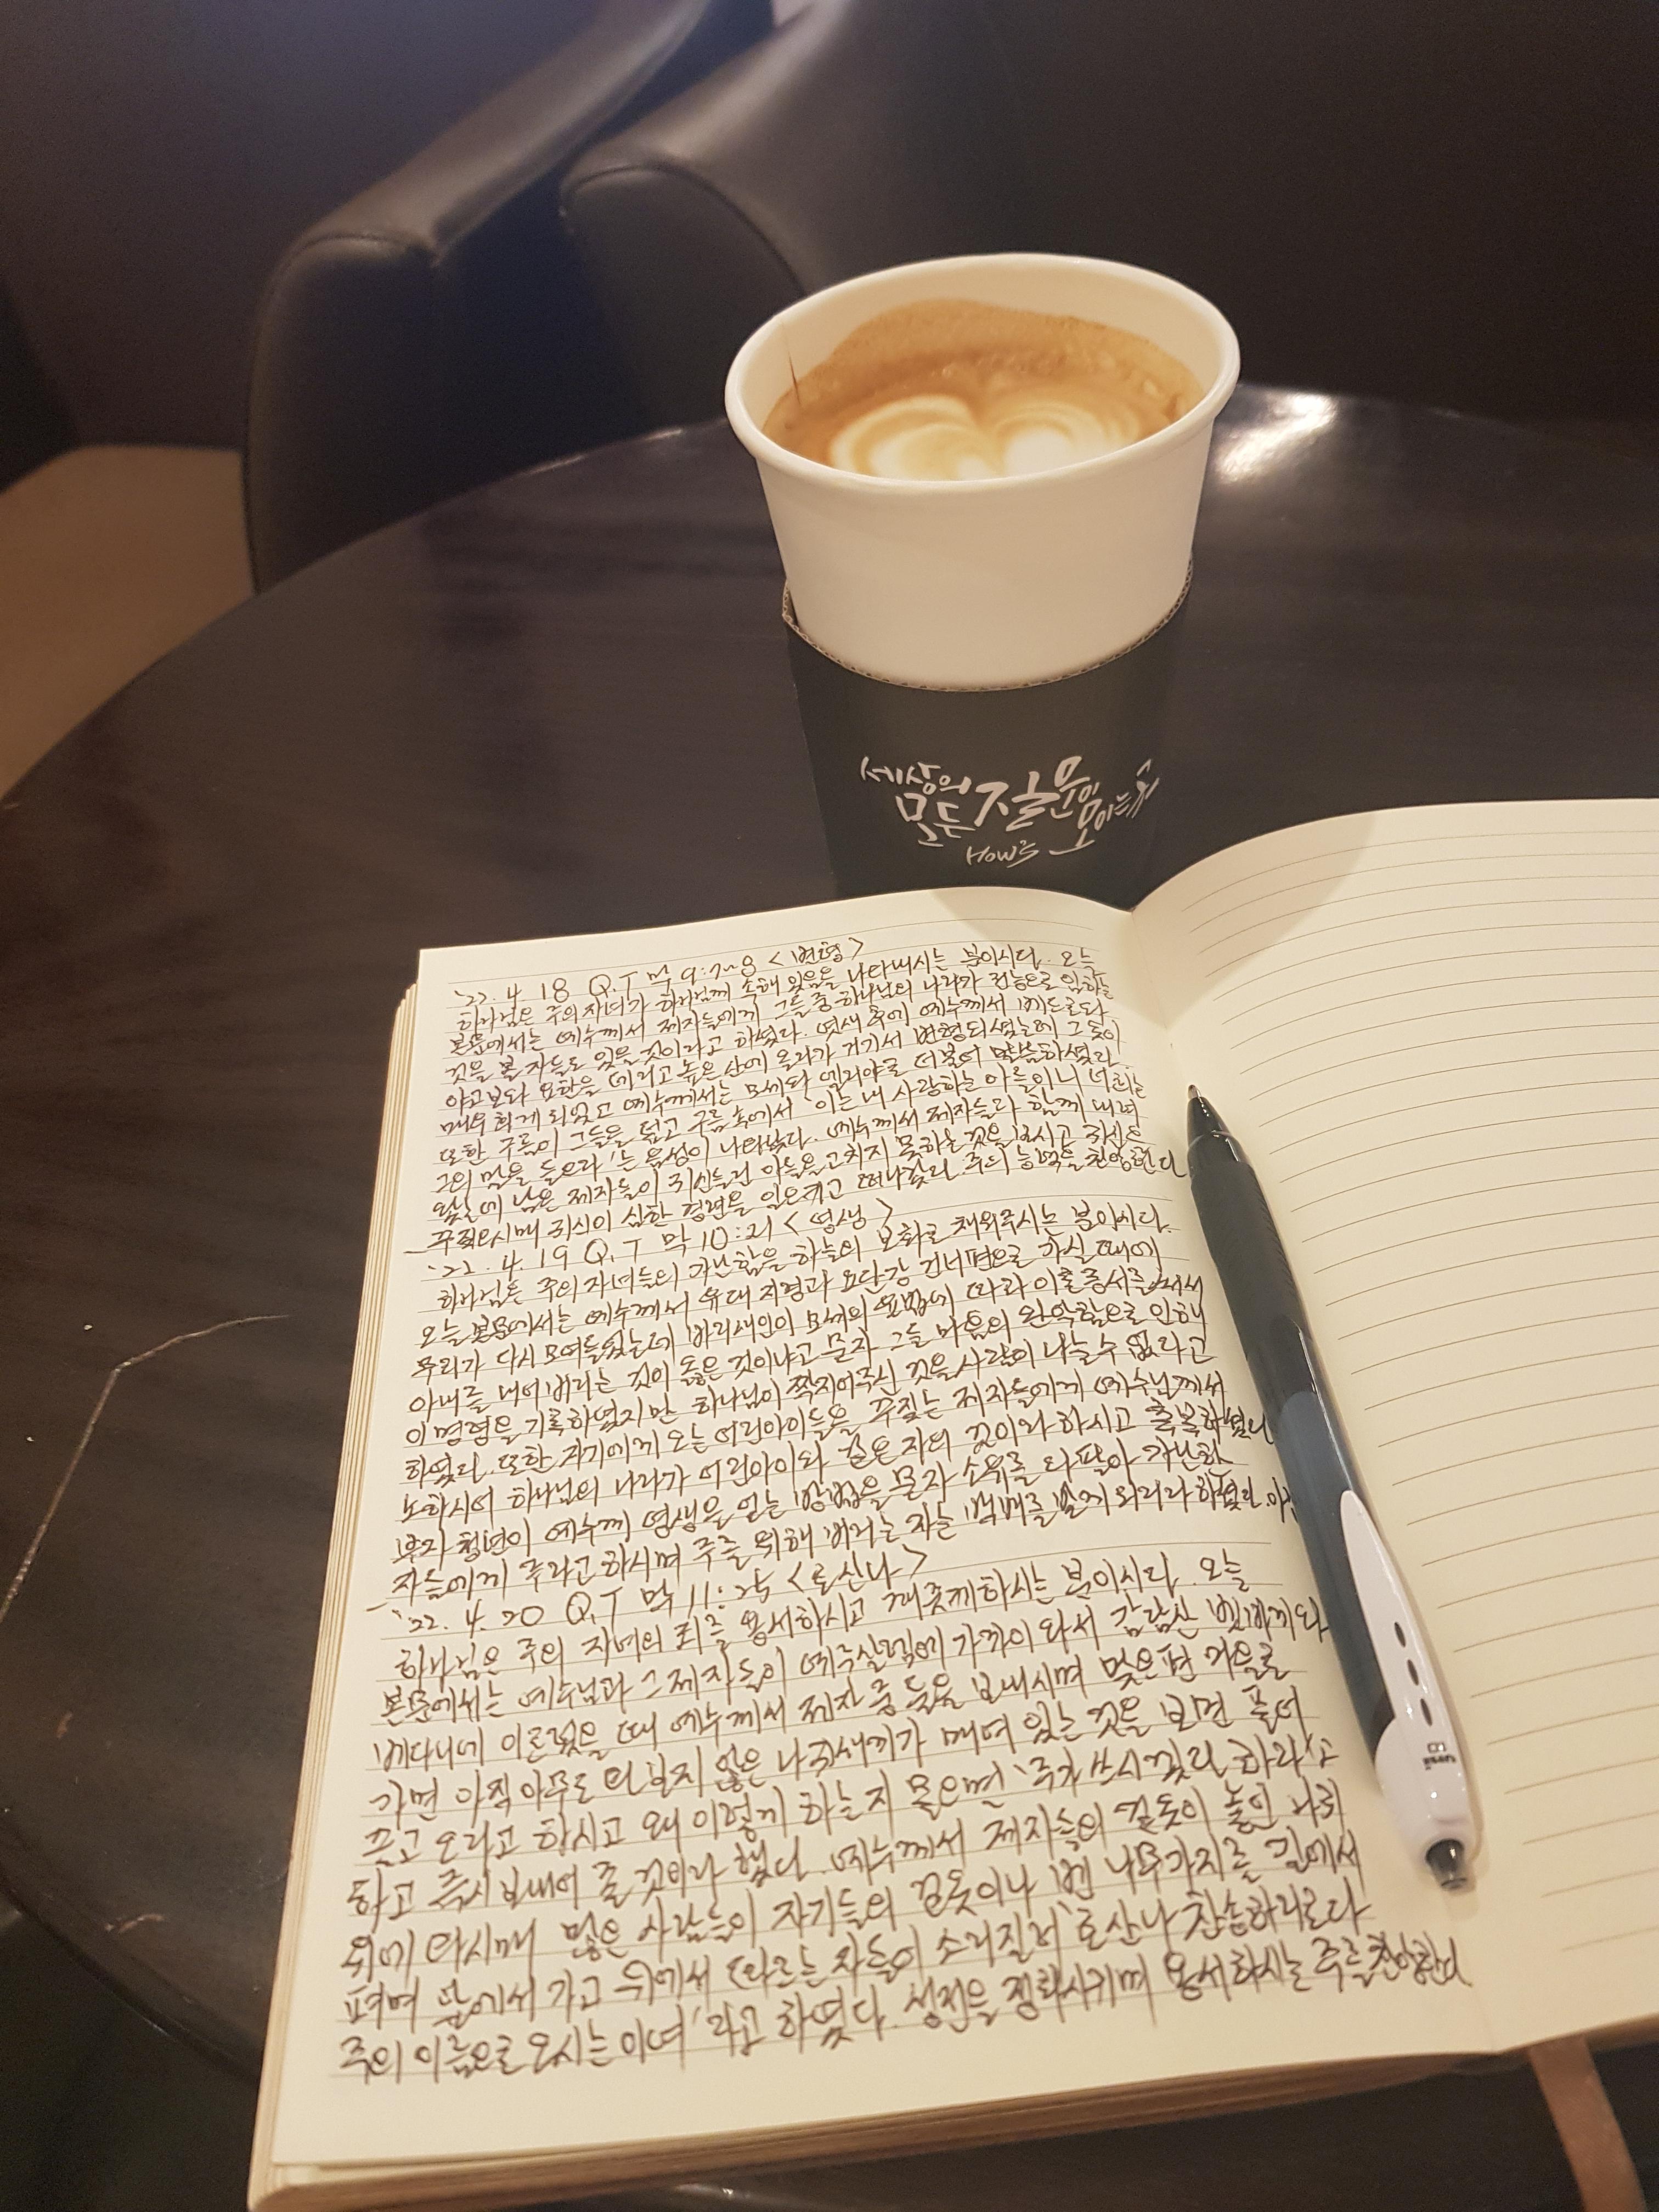 세상의
모든 질문이 모이는 곳
HOW'S
'22. 4. 18 Q.T 막 9:7~8 <변형>
하나님은 주의 자녀가 하나님께 속해 있음을 나타내시는 분이시다. 오늘
본문에서는 예수께서 제자들에게 그들 중 하나님의 나라가 권능으로 임하는
것을 볼 자들도 있을 것이라고 하셨다. 엿새 후에 예수께서 베드로와
야고보와 요한을 데리고 높은 산에 올라가 거기서 변형되셨는데 그 옷이
매우 희게 되었고 예수께서는 모세와 엘리야로 더불어 말씀하셨다.
또한 구름이 그들을 덮고 구름 속에서 '이는 내 사랑하는 아들이니 너희는
그의 말을 들으라'는 음성이 나타났다. 예수께서 제자들과 함께 내려
제자들이 귀신들린 아들을 고치지 못하는 것을 보시고 귀신을
꾸짖으시매 귀신이 심한 경련을 일으키고 떠나갔다. 주의 능력을 찬양한다
'22. 4. 19 Q.T 막 10:21 <영생>
하나님은 주의 자녀들의 가난함을 하늘의 보화로 채워주시는 분이시다.
오늘 본문에서는 예수께서 유대 지경과 요단강 건너편으로 가실 때에
무리가 다시 모여들었는데 바리새인이 모세의 율법에 따라 이혼증서를 써서
아내를 내어버리는 것이 옳은 것이냐고 묻자 그들 마음의 완악함으로 인해
이 명령을 기록하였지만 하나님이 짝지어주신 것을 사람이 나눌 수 없다고
하셨다. 또한 자기에게 오는 어린아이들을 꾸짖는 제자들에게 예수님께서
노하시어 하나님의 나라가 어린아이와 같은 자의 것이라 하시고 축복하셨다
부자 청년이 예수께 영생을 얻는 방법을 묻자 소유를 다 팔아 가난한
자들에게 주라고 하시며 주를 위해 버리는 자는 백배를 받게 되리라 하셨다.
'22. 4. 20 Q.T 막 11:25 <호산나>
하나님은 주의 자녀의 죄를 용서하시고 깨끗게하시는 분이시다. 오늘
본문에서는 예수님과 그 제자들이 예루살렘에 가까이 와서 감람산 벳바게와
베다니에 이르렀을 때 예수께서 제자 중 둘을 보내시며 맞은편 마을로
가면 아직 아무도 타 보지 않은 나귀새끼가 매여 있는 것을 보면 풀어
끌고 오라고 하시고 왜 이렇게 하는지 물으면 '주가 쓰시겠다 하라'고
하고 즉시 보내어 줄 것이라 했다. 예수께서 제자들의 겉옷이 놓인 나귀
위에 타시매 많은 사람들이 자기들의 겉옷이나 벤 나무가지를 길에서
펴며 앞에서 가고 뒤에서 따르는 자들이 소리질러 '호산나 찬송하리로다
주의 이름으로 오시는 이여'라고 하였다. 성전을 정화시키며 용서하시는 주를 찬양한다
uni